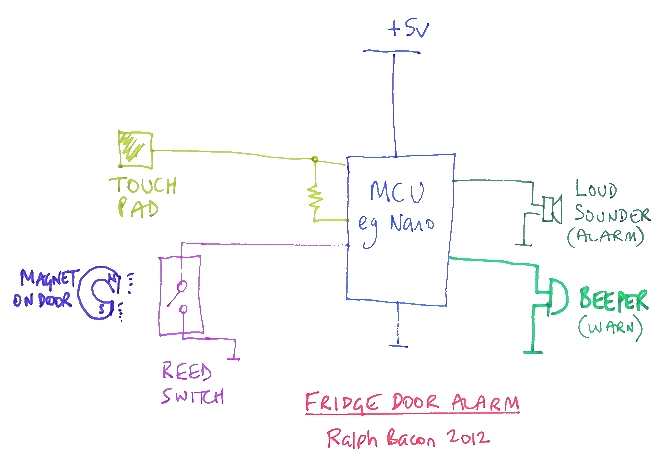 +5V
TOUCH
PAD
MCU
eg Nano
LOUD
SOUNDER
(ALARM)
MAGNET
ON DOOR
N
S
BEEPER
(WARN)
REED
SWITCH
FRIDGE DOOR ALARM
Ralph Bacon 2012